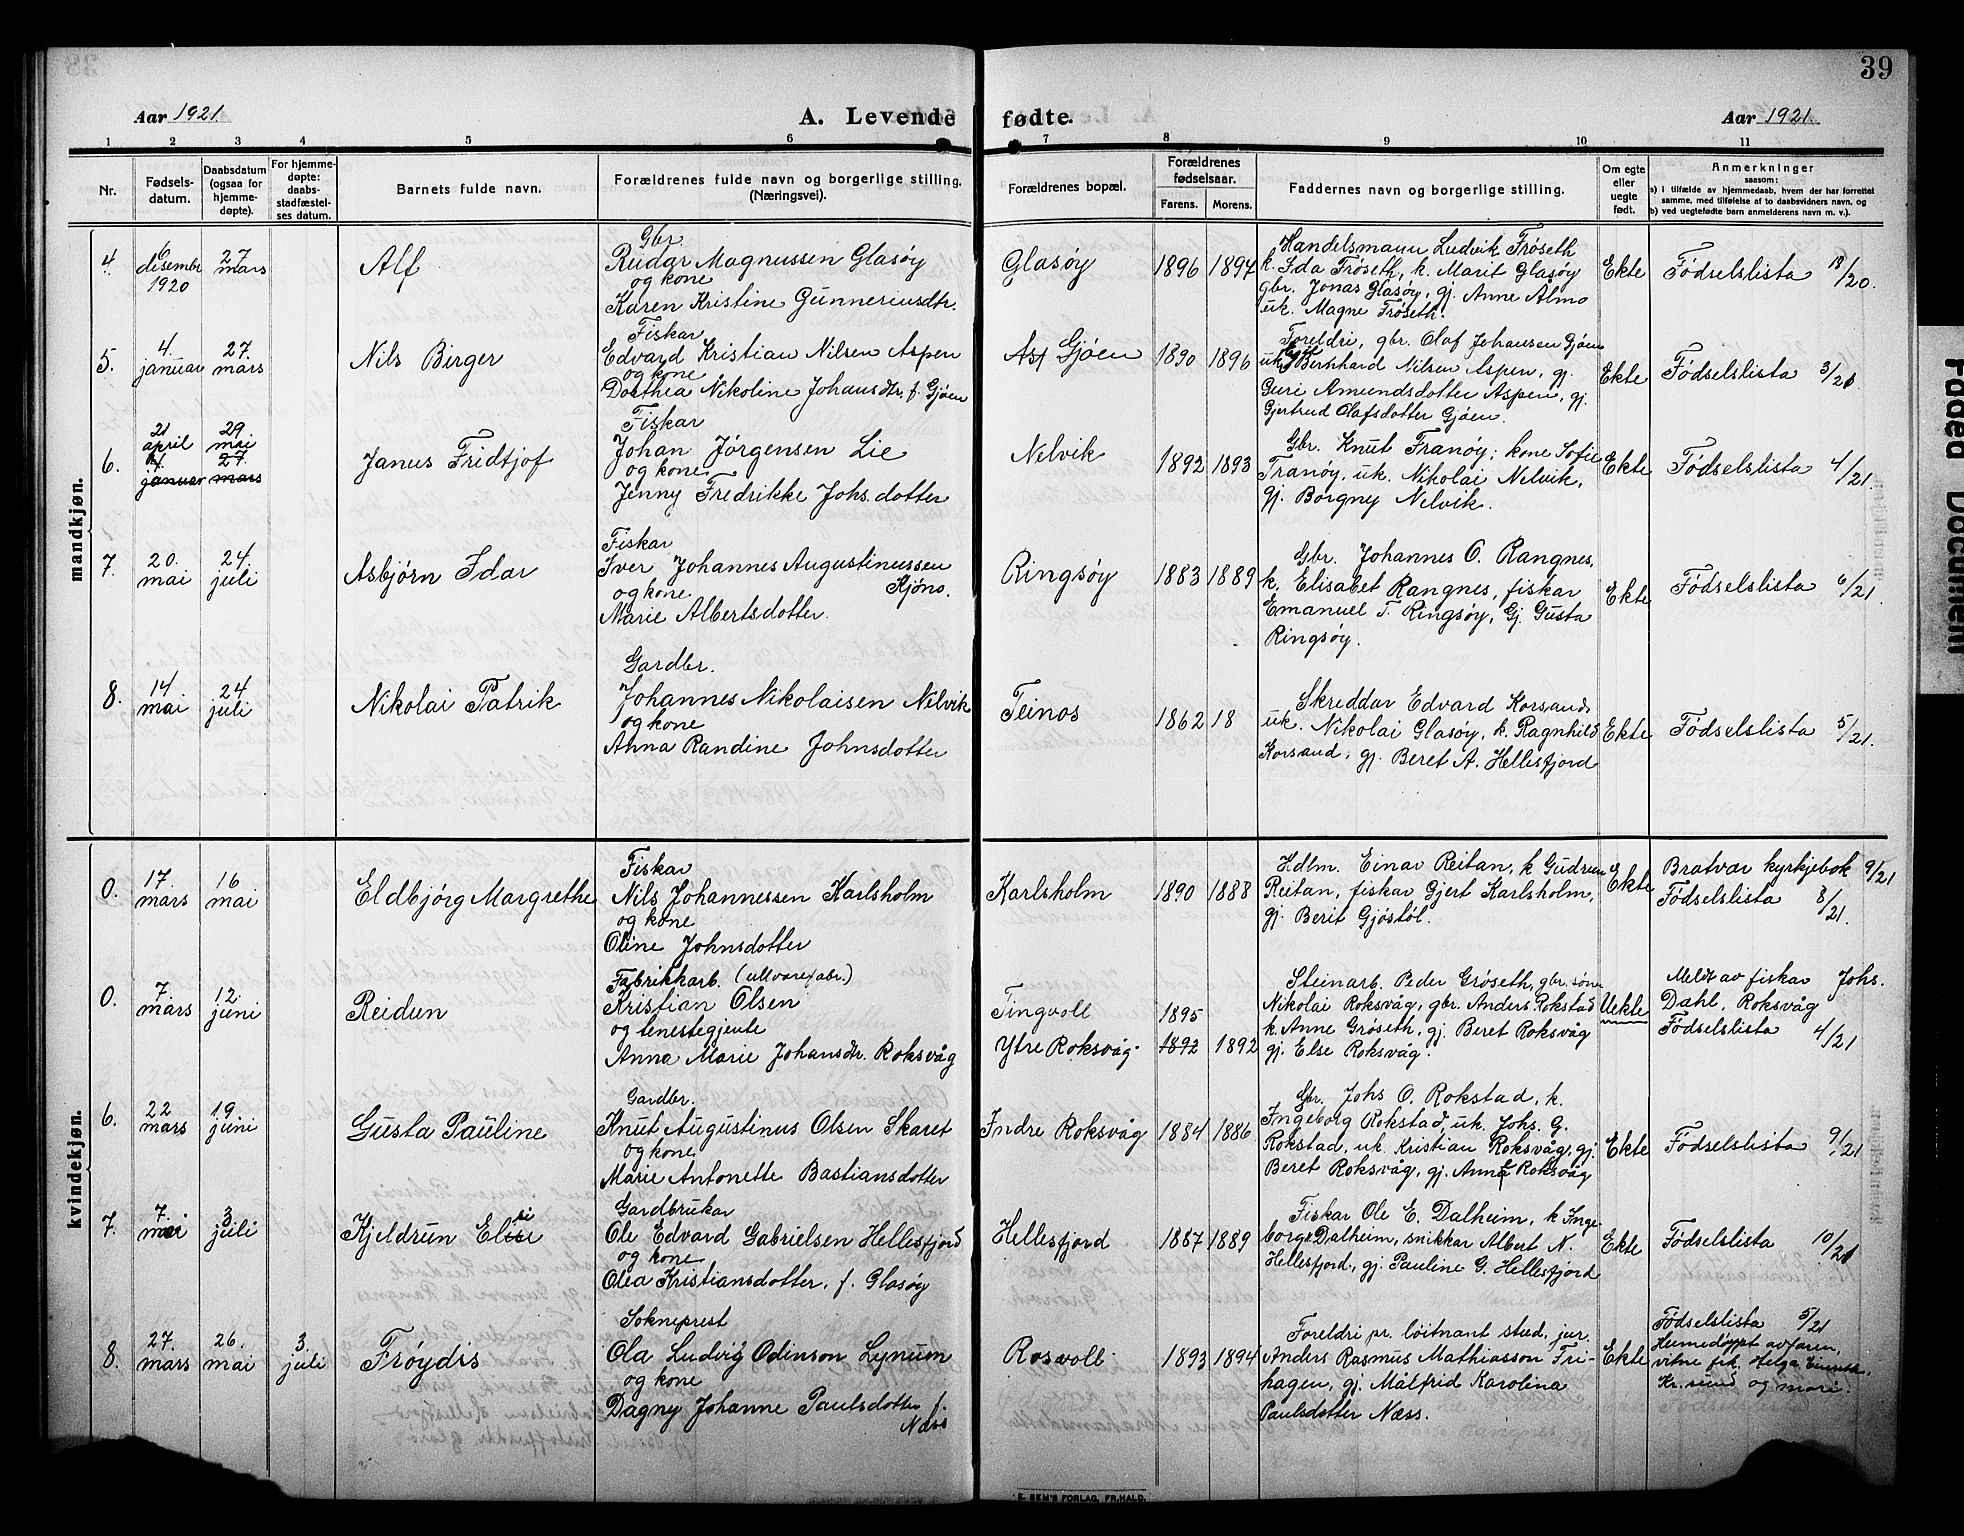 39
Aar 1921.
A. Levende fødte.
Aar 1921.
1 2 3 4 5 6 7 8 9 10 11
Nr.
Fødsels-
datum.
Daabsdatum
(ogsaa for
hjemme-
døpte).
For hjemme-
døpte:
daabs-
stadfæstel-
ses datum.
Barnets fulde navn.
Forældrenes fulde navn og borgerlige stilling.
(Næringsvei).
Forældrenes bopæl.
Forældrenes
fødselsaar.
Farens. Morens.
Faddernes navn og borgerlige stilling.
Om egte
eller
uegte
født.
Anmerkninger
saasom:
a) i tilfælde av hjemmedaab, hvem der har forrettet
samme, med tilføielse af to daabsvidners navn, og
b) ved uegtefødte barn anmelderens navn m. v.).
mandkjøn.
4.
6
desember
1920
27.
mars
Alf
Gbr.
Reidar Magnussen Glasøy
og kone
Karen Kristine Gunneriusdtr.
Glasøy
1896 1897
Handelsmann Ludvik Frøseth
k. Ida Frøseth, k. Marit Glasøy
gbr. Jonas Glasøy, gj. Anne Almo
uk. Magne Frøseth.
Ekte
Fødselslista 18/20.
5.
4.
januar
27.
mars
Nils Birger
Fiskar
Edvard Kristian Nilsen Aspen
og kone
Dorthea Nikoline Johansdtr. f. Gjøen
Gjøen
1890 1896
Foreldri, gbr. Olaf Johansen Gjøen
uk. Bernhard Nilsen Aspen, gj.
Guri Amundsdotter Aspen, gj.
Gjertrud Olafsdotter Gjøen.
Ekte
Fødselslista 3/21.
6.
21
april
4.
januar
29.
mai
27.
mars
Janus Fridtjof
Fiskar
Johan Jørgensen Lie
og kone
Jenny Fredrikke Johs.dotter
Nelvik
1892 1893
Gbr. Knut Tranøy; kone Sofie
Tranøy, uk. Nikolai Nelvik,
gj. Borgny Nelvik.
Ekte
Fødselslista 4/21.
7.
20.
mai
24.
juli
Asbjørn Idar
Fiskar
Iver Johannes Augustinussen
og kone Kjøno.
Marie Albertsdotter.
Ringsøy
1883 1889
Gbr. Johannes O. Rangnes,
k. Elisabet Rangnes, fiskar
Emanuel T. Ringsøy, Gj. Gusta
Ringsøy.
Ekte
Fødselslista 6/21.
8.
14
mai
24
juli
Nikolai Patrik
Gardbr.
Johannes Nikolaisen Nelvik
og kone
Anna Randine Johnsdotter
Teinos
1862 18
Skreddar Edvard Korsand,
uk. Nikolai Glasøy, k. Ragnhild
Korsand, gj. Beret A. Hellesfjord
Ekte
Fødselslista 5/21.
kvindekjøn.
0.
17.
mars
16
mai
Eldbjørg Margrethe
Fiskar
Nils Johannessen Karlsholm
og kone
Oline Johnsdotter
Karlsholm
1890 1888
Hdlm. Einar Reitan, k Gudrun
Reitan, fiskar Gjert Karlsholm,
gj. Berit Gjøstøl.
Ekte
Bratvær kyrkjebok 9/21
Fødselslista 8/21.
0.
7.
mars
12
juni
Reidun
Fabrikkarb. (ullvarefabr.)
Kristian Olsen
og tenestegjente
Anna Marie Johansdtr. Roksvåg
Tingvoll
Ytre Roksvåg.
1895
1892 1892
Steinarb. Peder Grøseth, gbr. søn
Nikolai Roksvåg, gbr. Anders Rokstad
k. Anne Grøseth, gj. Beret Roksvåg
gj. Else Roksvåg.
Uekte
Meldt av fiskar Johs.
Dahl, Roksvåg
Fødselslista 4/21
6.
22
mars
19
juni
Gusta Pauline
Gardbr.
Knut Augustinus Olsen Skaret
og kone
Marie Antonette Bastiansdotter
Indre Roksvåg
1884 1886
Gbr. Johs O. Rokstad, k.
Ingeborg Rokstad, uk. Johs. G.
Rokstad, uk. Kristian Roksvåg, gj.
Beret Roksvåg, gj. Anne Roksvåg
Ekte
Fødselslista 9/21
7.
7.
mai
3
juli
Kjeldrun Elsi
Gardbrukar
Ole Edvard Gabrielsen Hellesfjord
og kone
Olea Kristiansdotter, f. Glasøy
Hellesfjord
1887 1889
Fiskar Ole E. Dalheim, k Inge-
borg Dalheim, snikkar Albert N.
Hellesfjord, gj. Pauline G. Hellesfjord
Ekte
Fødselslista 10/21
8.
27.
mars
26.
mai
3.
juli
Frøydis
Sokneprest
Ola Ludvig Odinson Lynum
og kone
Dagny Johanne Paulsdotter f.
Næss
Rosvoll
1893 1894
Foreldri pr. løitnant stud. jur.
Anders Rasmus Mathiasson Tri-
hagen, gj. Målfrid Karolina
Paulsdotter Næss.
Ekte
Fødselslista 5/21
Heimedøypt av faren,
vitne frk. Helga
Kr.sund og
E. SEM'S FORLAG, FR.HALD.
Faded Document